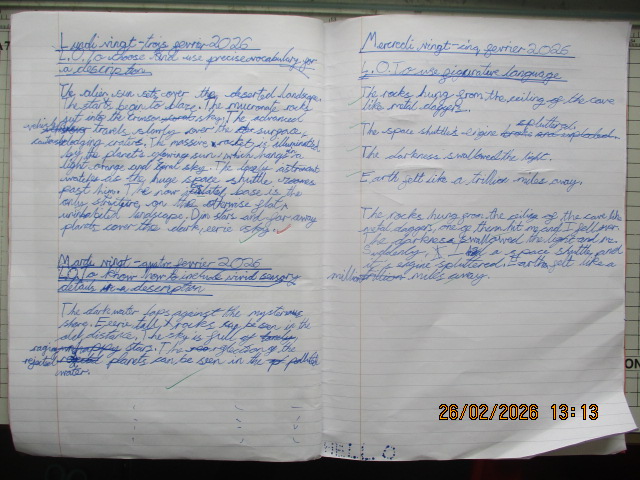 Lundi vingt-trois fevrier 2026
L.O. To choose and use precise vocabulary for
a description
The alien sun sets over the deserted landscape.
The stars begin to blaze. The mucronate rocks
jut into the crimson sky. The advanced
vehicle travels slowly over the surface,
dodging craters. The massive rocket is illuminated
by the planet's glowing sun, which hangs in a
light orange and tonal sky. The lonely astronaut
watches as the huge space shuttle zooms
past him. The now distant base is the
only structure on the otherwise flat,
uninhabited landscape. Dim stars and far away
planets cover the dark, eerie sky.
Mardi vingt-quatre fevrier 2026
L.O. To know how to include vivid sensory
details in a description
The dark water laps against the mysterious
shore. Eerie tall rocks can be seen in the
distance. The sky is full of
raging stars. The reflection of the
planets can be seen in the polluted
water.
Mercredi vingt-cinq fevrier 2026
L.O. To use figurative language
The rocks hung from the ceiling of the cave
like metal daggers.
spluttered.
The space shuttle's engine broke and imploded.
The darkness swallowed the light.
Earth felt like a trillion miles away.
The rocks hung from the ceiling of the cave like
metal daggers, one of them hit me and I fell over.
The darkness swallowed the light and me.
Suddenly, I a space shuttle, and
its engine spluttered. Earth felt like a
million miles away.
HELLO
26/02/2026 13:13